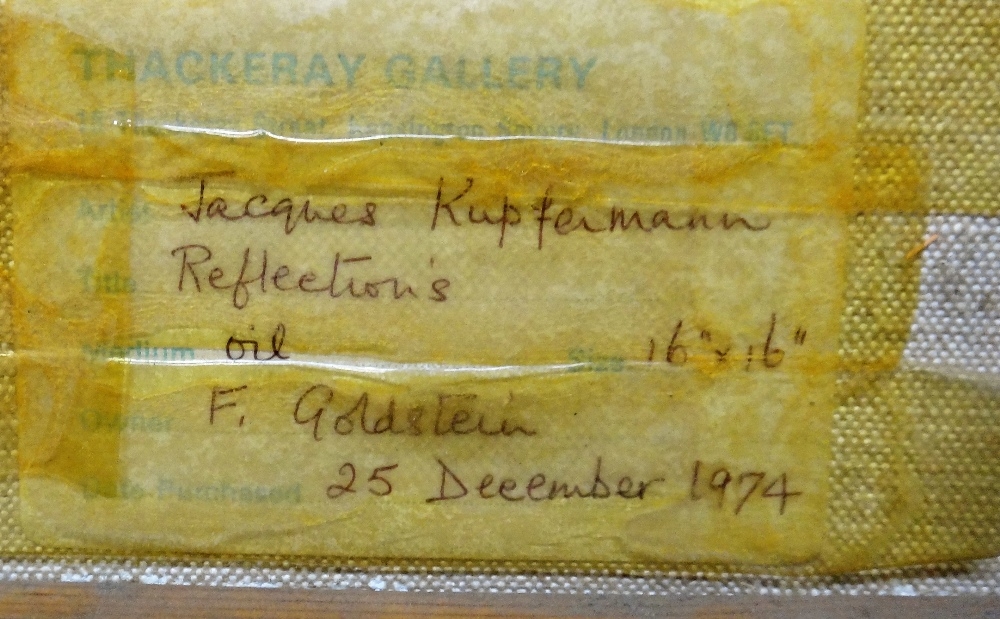 THACKERAY GALLERY
Thackeray Street, Kensington Square, London W8 5ET
Artist Jacques Kupfermann
Title Reflections
Medium oil Size 16" x 16"
Owner F. Goldstein
Date Purchased 25 December 1974